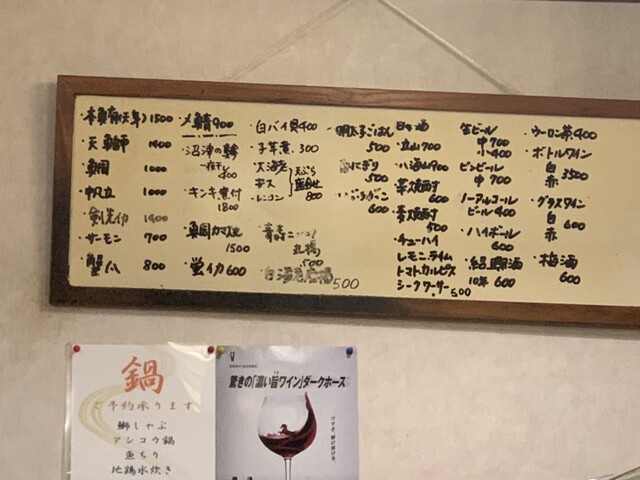 本鮪(天然) 1500
天然鰤 1400
真鯛 1000
帆立 1000
剣先イカ 1400
サーモン 700
蟹ハ 800
〆鯖 900
沼津の鯵
一夜干し
キンキ煮付
1800
真鯛カマ塩
1500
蛍イカ 600
白バイ貝 400
子芋煮 300
大海老
キス
レンコン
天ぷら
盛合せ
800
500
500
明太子ごはん
500
おにぎり
500
600
日本酒
立山 700
八海山 900
芋焼酎
600
麦焼酎
500
チューハイ
レモン・ライム
トマト・カルピス
シークワーサー 500
生ビール
中 700
小 400
ビンビール
中 700
ノーアルコール
ビール 400
ハイボール
600
紹興酒
10年 600
ウーロン茶 400
ボトルワイン
白
赤 3500
グラスワイン
白
赤 600
梅酒
600
鍋
ご予約承ります
鰤しゃぶ
アンコウ鍋
魚ちり
地鶏水炊き
驚きの「濃い旨ワイン」ダークホース